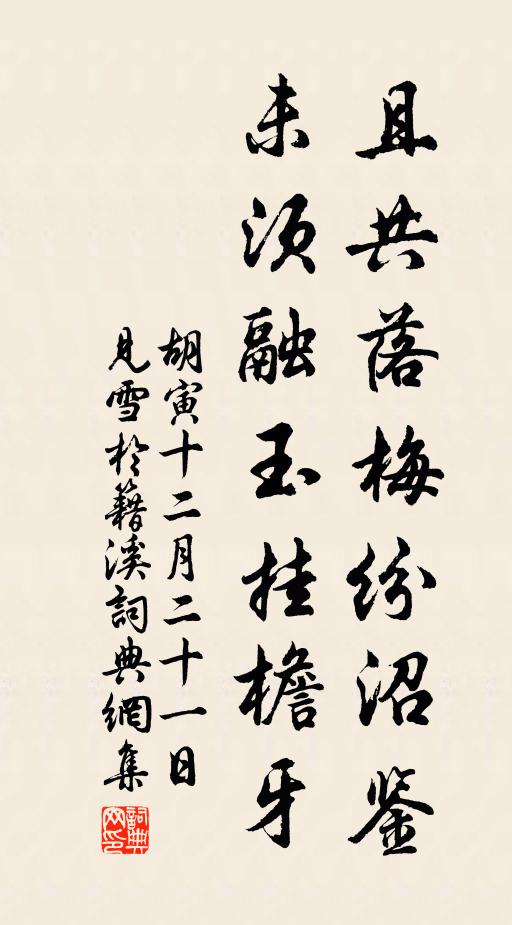 且共落梅紛沼鉴
未須融玉挂檐牙
胡寅十二月二十一日
見雪於籍溪詞典網集
詞典
网印